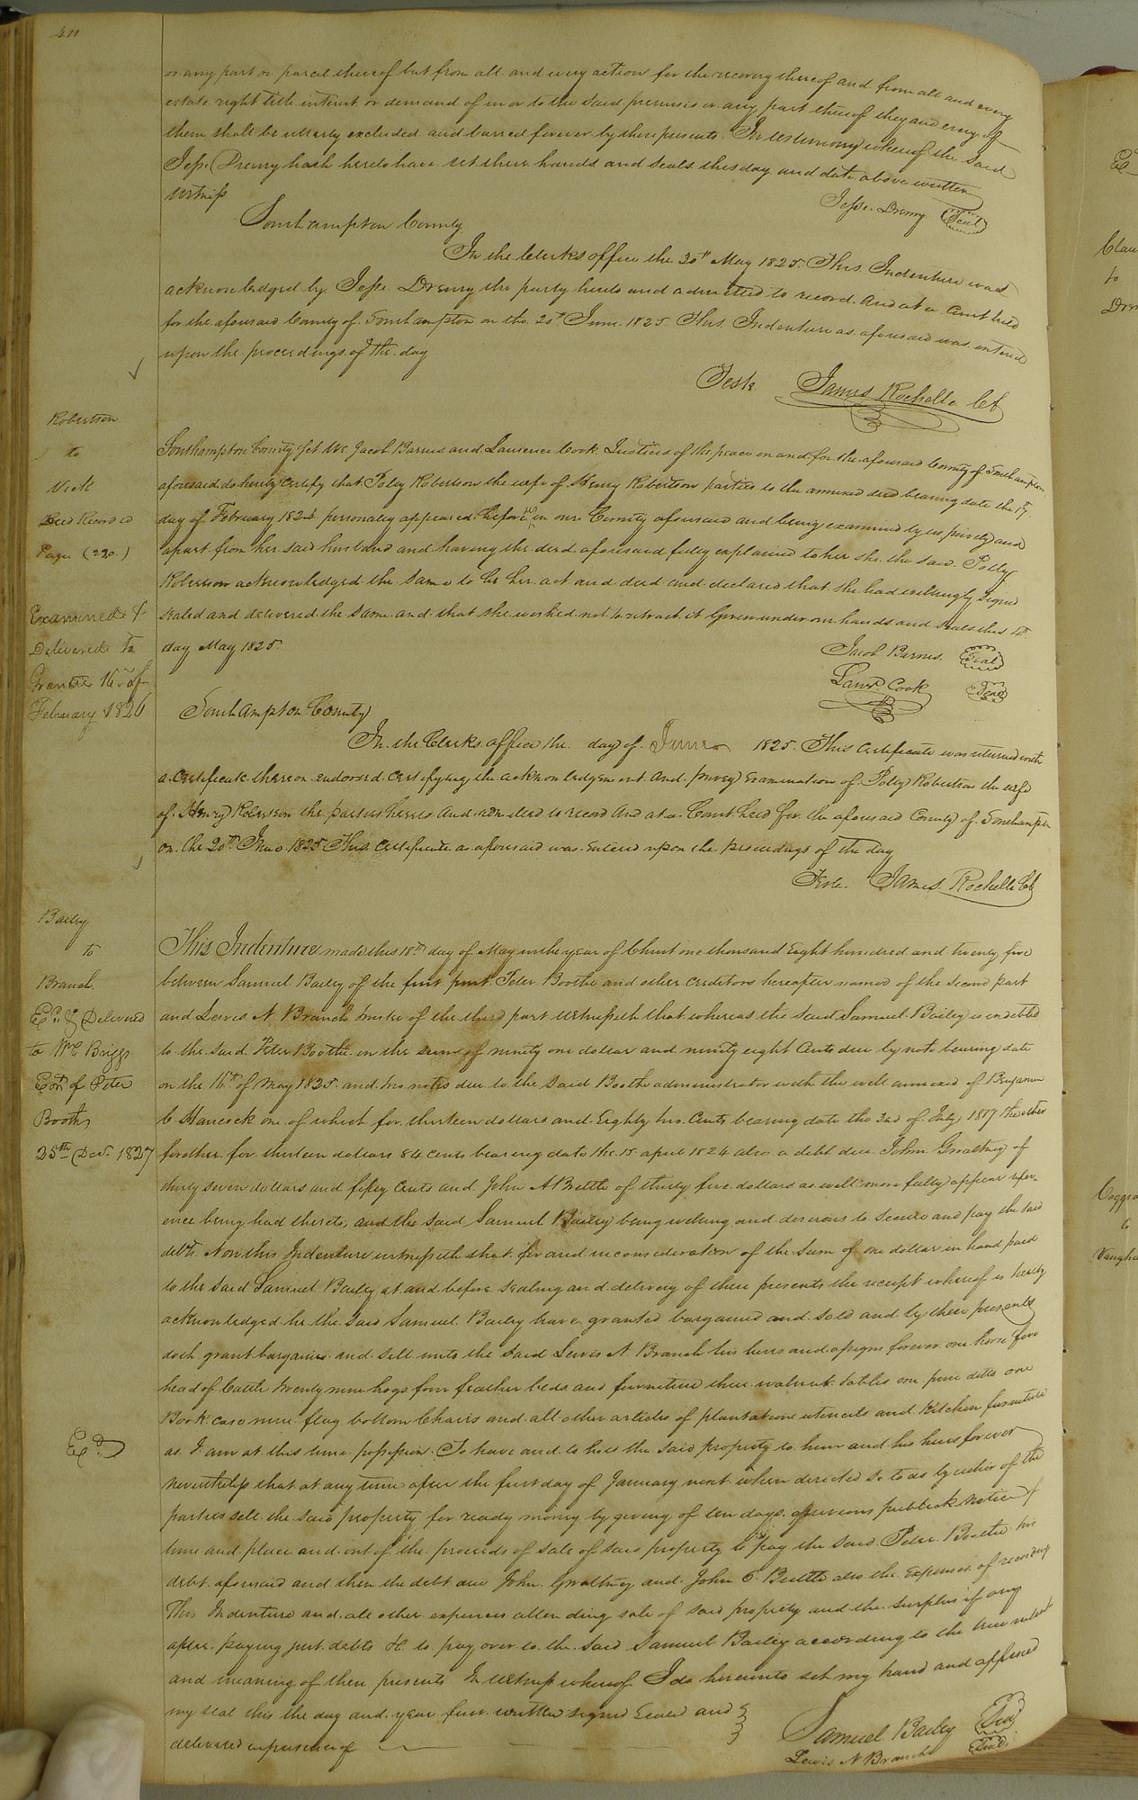 or any part or parcel thereof but from all and every action for the recovery thereof and from all and every
estate right title interest or demand of in or to the said premises or any part thereof they and every of
them shall be utterly excluded and barred forever by these presents. In testimony whereof the said
Jesse Drewry hath hereto have set their hands and seals this day and date above written
witness
Jesse Drewry Seal
Southampton County
In the Clerks office the 20th May 1825. This Indenture was
acknowledged by Jesse Drewry the party hereto and admitted to record And at a Court held
for the aforesaid County of Southampton on the 20th June 1825 This Indenture as aforesaid was entered
upon the proceedings of the day
Teste James Rochelle Clk
Robertson
to
Vick
Deed Recorded
Page (220)
Examined &
Delivered to
Grantee 16th of
February 1826
Southampton County Sct We Jacob Barnes and Lawrence Cook Justices of the peace in and for the aforesaid County of Southampton
aforesaid do hereby certify that Polly Robertson the wife of Henry Robertson parties to the annexed deed bearing date the 17
day of February 182 personally appeared before us in our County aforesaid and being examined by us privily and
apart from her said husband and having the deed aforesaid fully explained to her she the said Polly
Robertson acknowledged the same to be her act and deed and declared that she had willingly signed
sealed and delivered the same and that she wished not to retract it Given under our hands and seals this
day May 1825.
Jacob Barnes Seal
Lawr. Cook Seal
Southampton County
In the Clerks office the day of June 1825. This Certificate was returned with
a certificate thereon endorsed certifying the acknowledgement and privy Examination of Polly Robertson the wife
of Henry Robertson the parties hereto and admitted to record And at a Court held for the aforesaid County of Southampton
on the 20th June 1825 This Certificate as aforesaid was entered upon the proceedings of the day
Teste James Rochelle Clk
Bailey
to
Branch
Exd & Delivered
to Wm Briggs
Exor. of Peter
Booth
25th Decr 1827
This Indenture made this 18th day of May in the year of Christ one thousand Eight hundred and twenty five
between Samuel Bailey of the first part Peter Boothe and other creditors hereafter named of the second part
and Lewis N Branch trustee of the third part witnesseth that whereas the said Samuel Bailey is indebted
to the said Peter Boothe in the sum of ninety one dollar and ninety eight Cents due by note bearing date
on the 16th of May 1825 and two notes due to the said Boothe administrator with the will annexed of Benjamin
C Hancock one of which for thirteen dollars and Eighty two Cents bearing date the 2nd of July 1817 the other
for other for thirteen dollars 84 cents bearing date the 15 april 1824 also a debt due John Gwaltney of
thirty seven dollars and fifty Cents and John A Brittle of thirty five dollars as will more fully appear refer-
ence being had thereto, and the said Samuel Bailey being willing and desirous to secure and pay the said
debts. Now this Indenture witnesseth that for and in consideration of the sum of one dollar in hand paid
to the said Samuel Bailey at and before sealing and delivery of these presents the receipt whereof is hereby
acknowledged he the said Samuel Bailey have granted bargained and sold and by these presents
doth grant bargain and sell unto the said Lewis N Branch his heirs and assigns forever one horse five
head of Cattle twenty nine hogs four feather beds and furniture three walnut tables one pine ditto one
Book case nine flag bottom Chairs and all other articles of plantation utensils and kitchen furniture
as I am at this time possession. To have and to hold the said property to him and his heirs forever
nevertheless that at any time after the first day of January next when directed so to do by either of the
parties sell the said property for ready money by giving of ten days previous publick notice of
time and place and out of the proceeds of sale of said property to pay the said Peter Boothe his
debt aforesaid and then the debt due John Gwaltney and John C. Brittle also the Expenses of recording
This Indenture and all other expenses attending sale of said property and the surplus if any
after paying just debts &c to pay over to the said Samuel Bailey according to the true intent
and meaning of these presents In witness whereof I do hereunto set my hand and affixed
my seal this the day and year first written signed Sealed and
delivered in presence of
Exd
Samuel Bailey Seal
Lewis N Branch Seal
to
to